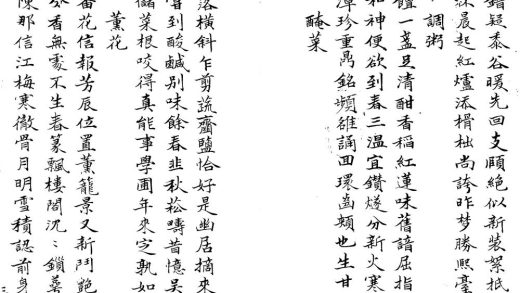 錯疑黍谷暖先回支頤絶似新裝絮抵
深晨起紅爐添榾柮尚誇昨夢勝熙臺
調粥
饘一盞足清酣香稻紅蓮味舊諳屈指
和神便欲到春三温宜鑽燧分新火寒
渾珍重鬲銘頻雒誦回環齒頰也生甘
醃菜
落橫斜乍剪蔬齏鹽恰好是幽居摘來
嘗到酸鹹別味餘春韭秋菘疇昔憶吳
儲菜根咬得真能事學圃年來定孰如
薰花
番花信報芳辰位置薰籠景又新鬥艷
香無處不生春篆飄樓閣沉〻鎖
陳那信江梅寒徹骨月明雪積認前身